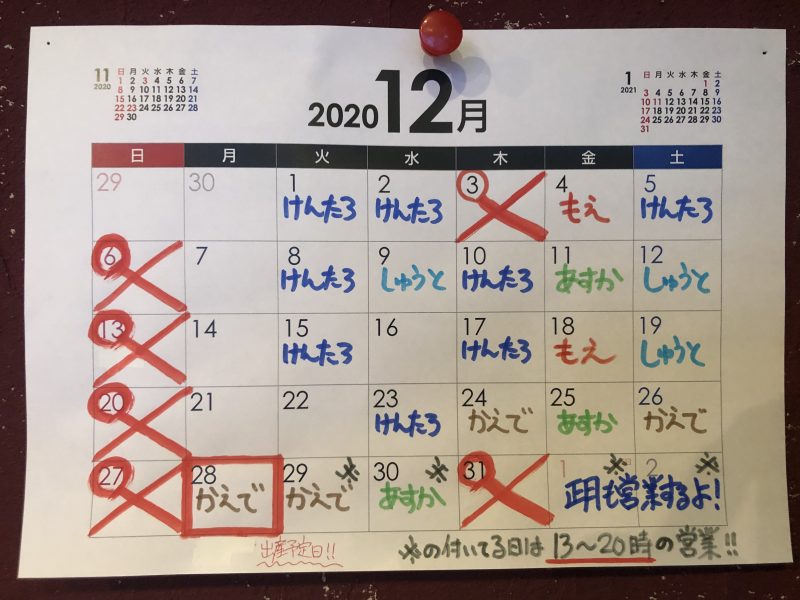 11
2020
日 月 火 水 木 金 土
1 2 3 4 5 6 7
8 9 10 11 12 13 14
15 16 17 18 19 20 21
22 23 24 25 26 27 28
29 30
2020 12月
1
2021
日 月 火 水 木 金 土
1 2
3 4 5 6 7 8 9
10 11 12 13 14 15 16
17 18 19 20 21 22 23
24 25 26 27 28 29 30
31
日 月 火 水 木 金 土
29 30 1 2 3 4 5
けんたろ けんたろ もえ けんたろ
6 7 8 9 10 11 12
けんたろ しゅうと けんたろ あすか しゅうと
13 14 15 16 17 18 19
けんたろ けんたろ もえ しゅうと
20 21 22 23 24 25 26
けんたろ かえで あすか かえで
27 28 29 ※ 30 ※ 31 1 ※ 2 ※
かえで かえで あすか 正月も営業するよ!
出産予定日!!
※の付いてる日は13〜20時の営業!!